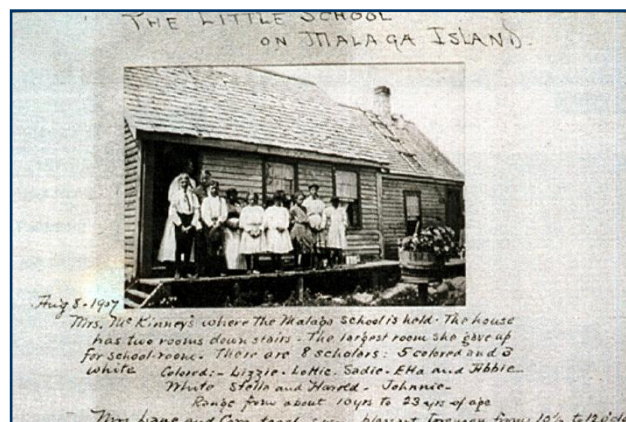 THE LITTLE SCHOOL
ON MALAGA ISLAND.
Aug 8 - 1907
Mrs. McKinney's where the Malaga School is held. The house
has two rooms down stairs - The largest room she gave up
for school-room. There are 8 scholars: 5 colored and 3
white Colored:- Lizzie - Lottie - Sadie - Etta and Abbie
White Stella and Harold - Johnnie -
Range from about 10 yrs to 23 yrs of age
Mrs Lane and Cora teach every pleasant forenoon from 10½ to 12 o'clo